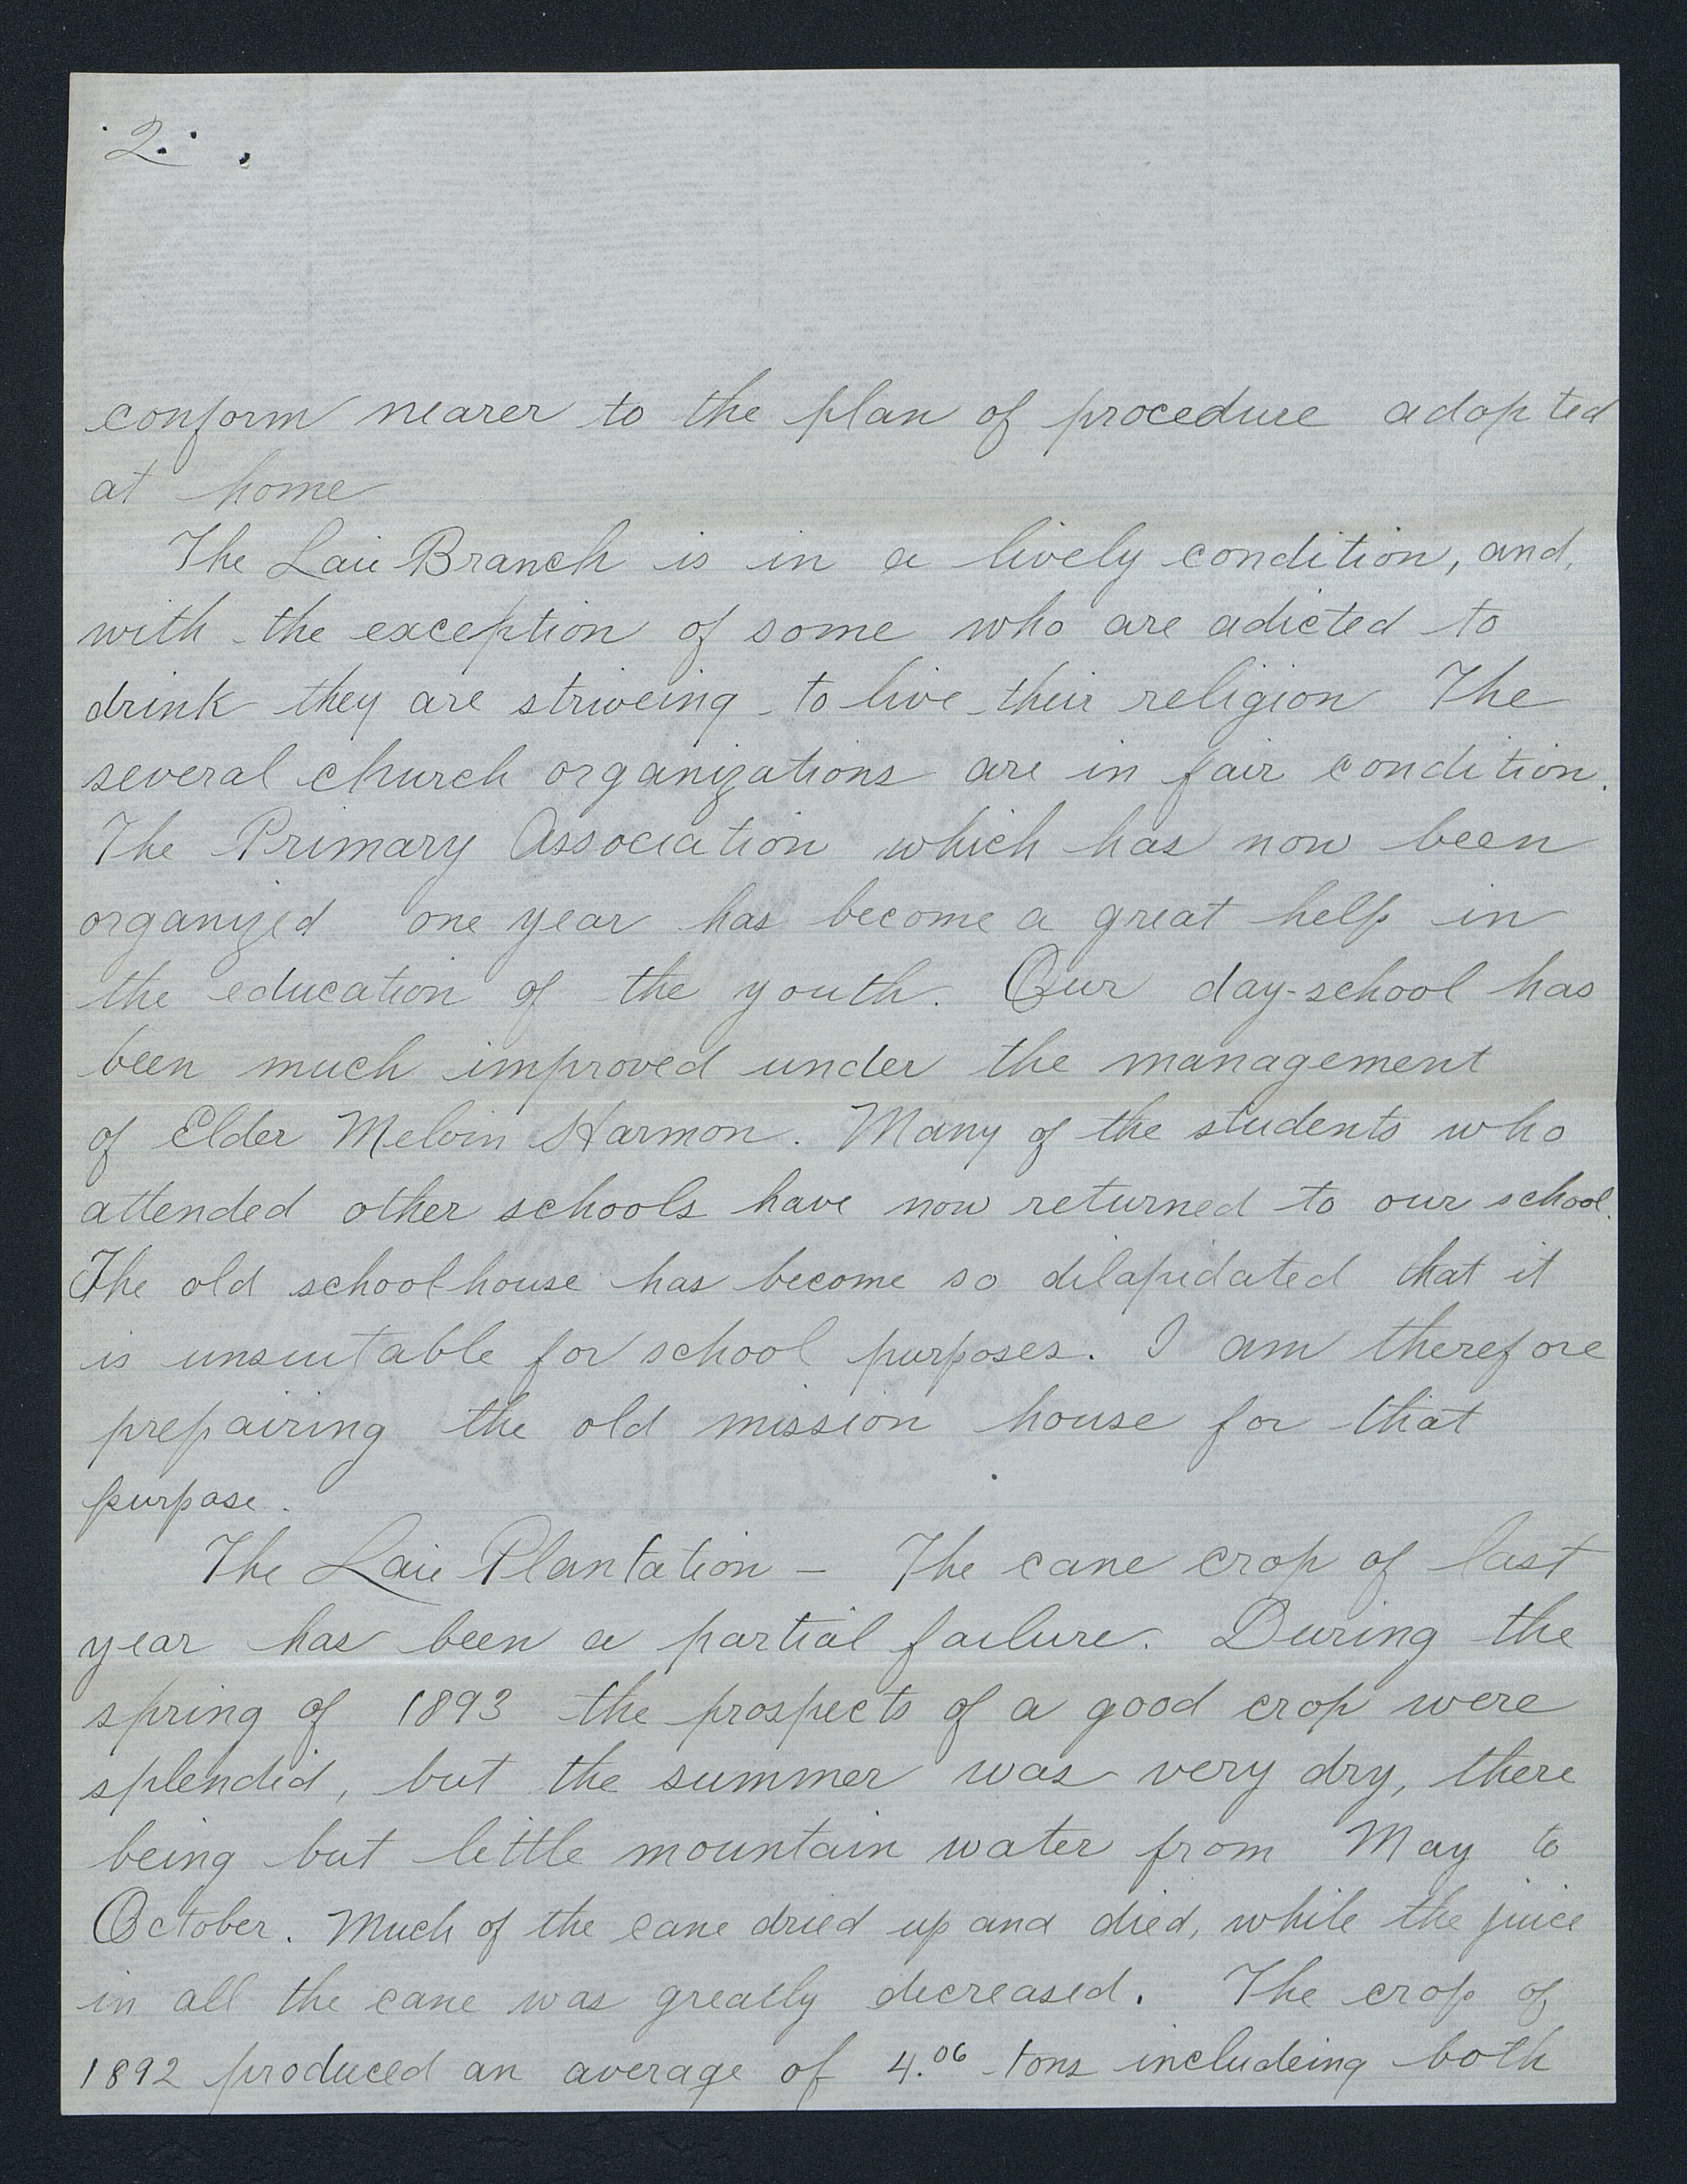 2.
conform nearer to the plan of procedure adopted
at home
The Laie Branch is in a lively condition, and,
with the exception of some who are adicted to
drink they are striveing to live their religion The
several church organizations are in fair condition.
The Primary Association which has now been
organized one year has become a great help in
the education of the youth. Our day-school has
been much improved under the management
of Elder Melvin Harmon. Many of the students who
attended other schools have now returned to our school.
The old school-house has become so dilapidated that it
is unsuitable for school purposes. I am therefore
prepairing the old mission house for that
purpose.
The Laie Plantation – The cane crop of last
year has been a partial failure. During the
spring of 1893 the prospects of a good crop were
splendid, but the summer was very dry, there
being but little mountain water from May to
October. Much of the cane dried up and died, while the juice
in all the cane was greatly decreased. The crop of
1892 produced an average of 4.06 tons includeing both